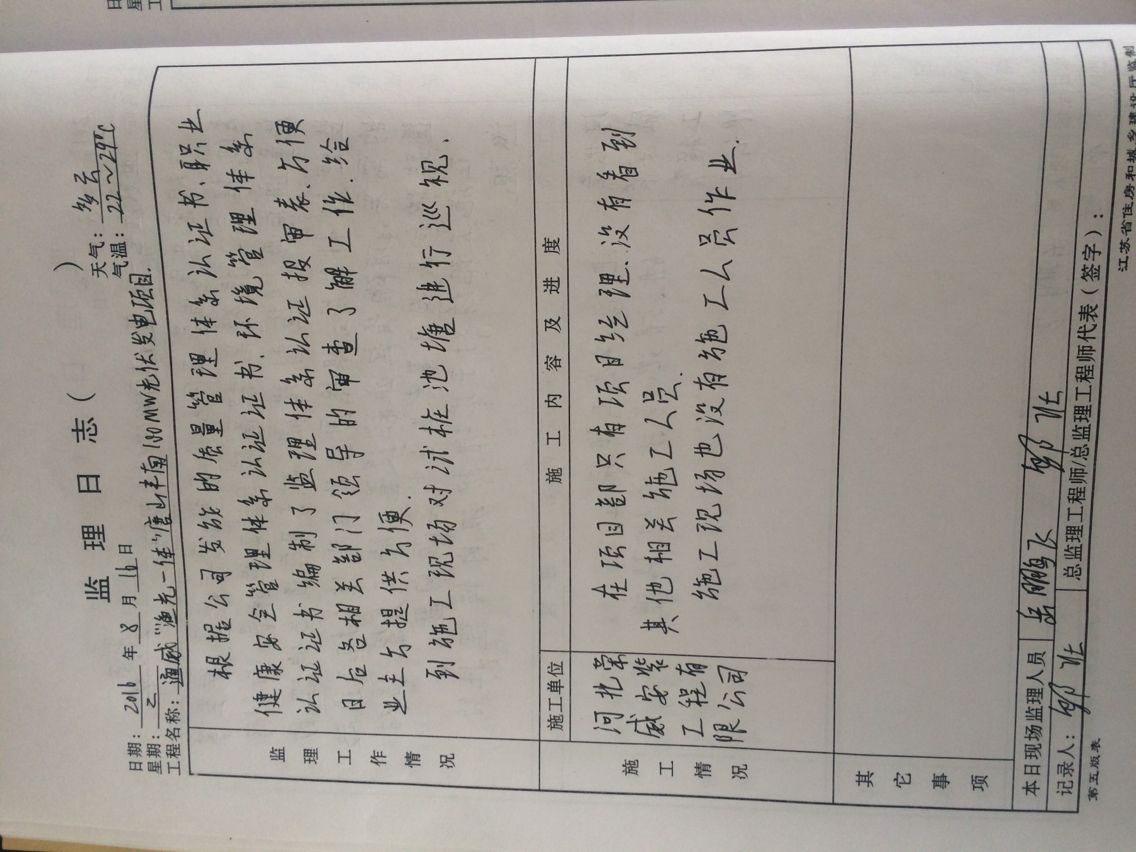 监理日志（ ）
日期：2016年8月16日 天气：多云
星期：二 气温：22～29℃
工程名称：通威“渔光一体”唐山丰南100MW光伏发电项目.
监理工作情况
根据公司发的质量管理体系认证书、职业
健康安全管理体系认证证书、环境管理体系
认证证书编制了监理体系认证报审表、方便
日后各相关部门领导的审查了解工作.给
业主方提供方便.
到施工现场对试桩池塘进行巡视.
施工单位 施工内容及进度
施工情况
河北荣
威安装
工程有
限公司
在项目部只有项目经理.没有看到
其他相关施工人员.
施工现场也没有施工人员作业.
其它事项
本日现场监理人员 岳鹏飞
记录人： 总监理工程师/总监理工程师代表（签字）：
第五版表 江苏省住房和城乡建设厅监制